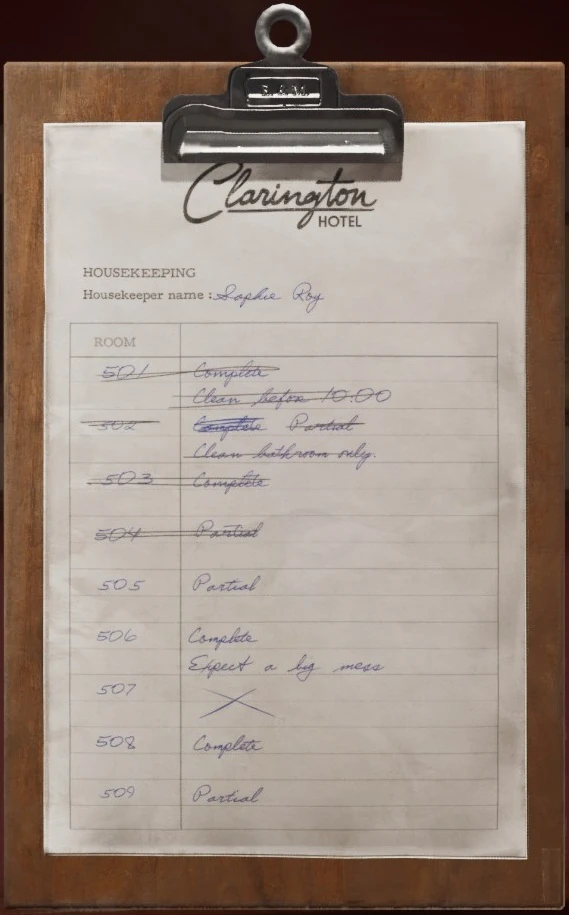 Clarington
HOTEL
HOUSEKEEPING
Housekeeper name : Sophie Roy
ROOM
501 Complete
Clean before 10:00
502 Complete Partial
Clean bathroom only.
503 Complete
504 Partial
505 Partial
506 Complete
Expect a big mess
507
508 Complete
509 Partial